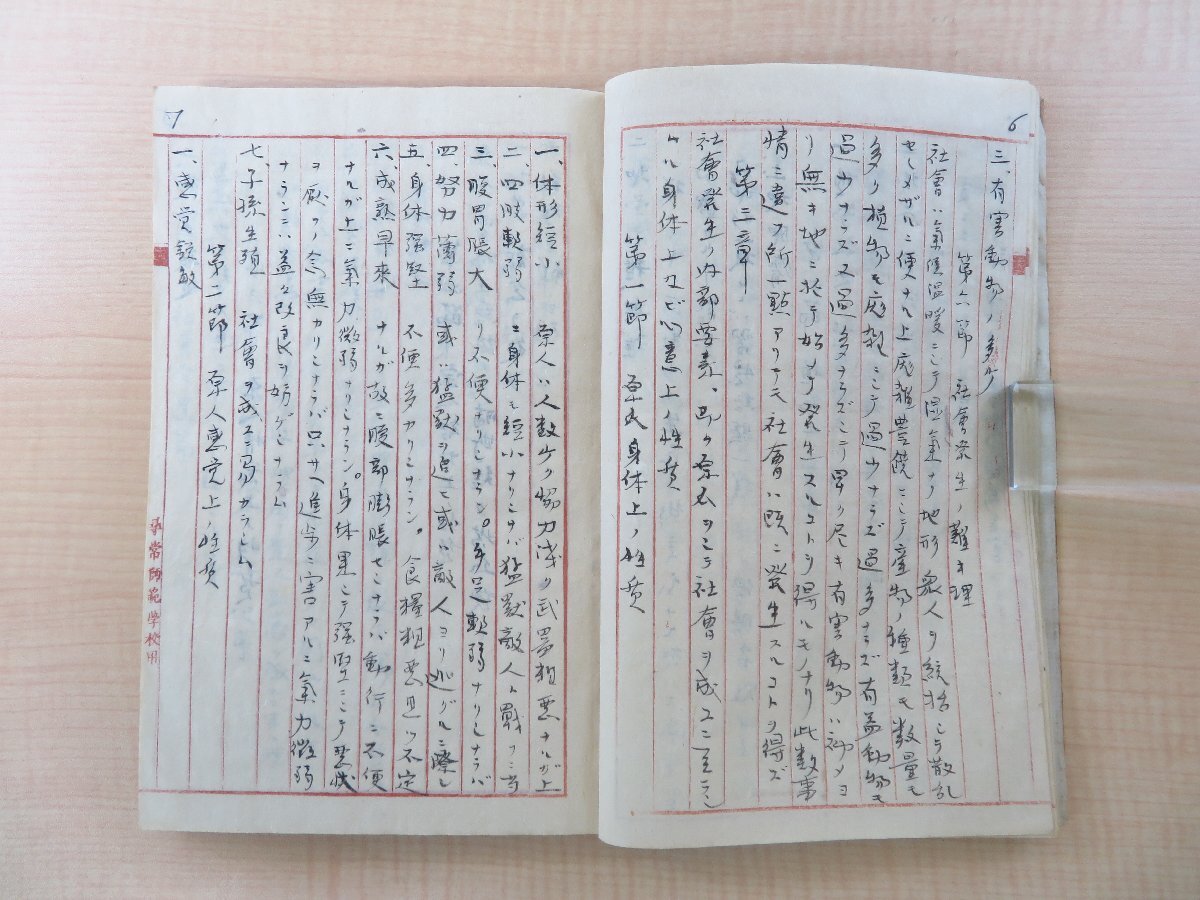 6
三、有害動物ノ多少
第六節 社會発生ノ難キ理
社會ハ氣候温暖ニシテ湿氣ナク地形衆人ヲ統括シテ散乱
セシメザルニ便ナル上庞雑豊饒ニシテ産物ノ種類モ数量モ
多ク植物モ庞雑ニシテ過少ナラズ過多ナラズ有益動物モ
過少ナラズ又過多ナラズシテ早ク尽キ有害動物ハ初メヨ
リ無キ地ニ於テ始メテ発生スルコトヲ得ルモノナリ此数事
情ニ違フ所一點アリテモ社會ハ既ニ發生スルコトヲ得ズ
第三章
社會發生ノ内部要素、即ク原人ヲシテ社會ヲ成スニ至ラシ
ムル身体上及ビ心意上ノ性質
第一節 原民身体上ノ性質
7
一、体形短小 原人ハ人数少ク協力浅ク武器粗悪ナルガ上
ニ身体モ短小ナリシナバ猛獣敵人ト戰フニ当
リ不便ナリシナラン。
二、四肢軟弱 手足軟弱ナリシナラバ
三、腹胃脹大
四、努力薄弱 或ハ猛獣ヲ追ヒ或ハ敵人ヨリ逃グルニ際シ
不便多カリシナラン。
五、身体强堅 食糧粗悪且ツ不定
六、成熟早来 ナルガ故ニ腹部膨脹セシナラバ動行ニ不便
ナルガ上ニ氣力微弱ナリシナラン。身体果シテ强堅ニシテ
ヲ厭フノ念無カリシナラバ只サヘ進歩ニ害アルニ氣力微弱
ナランニハ益々改良ヲ妨ゲシナラム
七、子孫生殖 社會ヲ成スニ易カラシム
第二節 原人感覚上ノ性質
一、感覚鋭敏
尋常師範學校用